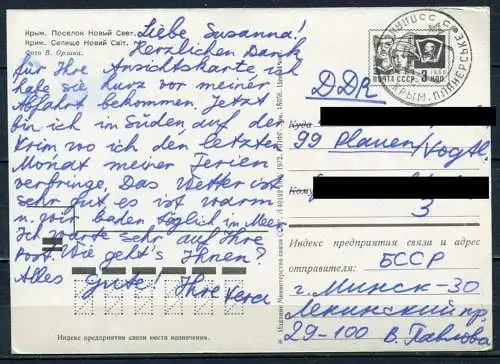 Крым. Поселок Новый Свет.
Крим. Селище Новий Світ.
Фото В. Оршка.
Liebe Susanna!
Herzlichen Dank
für Ihre Ansichtskarte, ich
habe sie kurz vor meiner
Abfahrt bekommen. Jetzt
bin ich im Süden, auf der
Krim wo ich den letzten
Monat meiner Ferien
verbringe. Das Wetter ist
sehr gut, es ist warm
u. wir baden täglich im Meer.
Ich warte sehr auf Ihre
Post. Wie geht's Ihnen?
Alles Gute! Ihre Vera
Индекс предприятия связи места назначения.
Министерства связи СССР
1972
ПОЧТА СССР
1966
КРЫМ. ПЛАНЕРСКОЕ
DDR
Куда
99 Plauen/Vogtl.
Кому
3
Индекс предприятия связи и адрес
отправителя: БССР
г. Минск-30
Ленинский пр.
29-100 В. Павлова